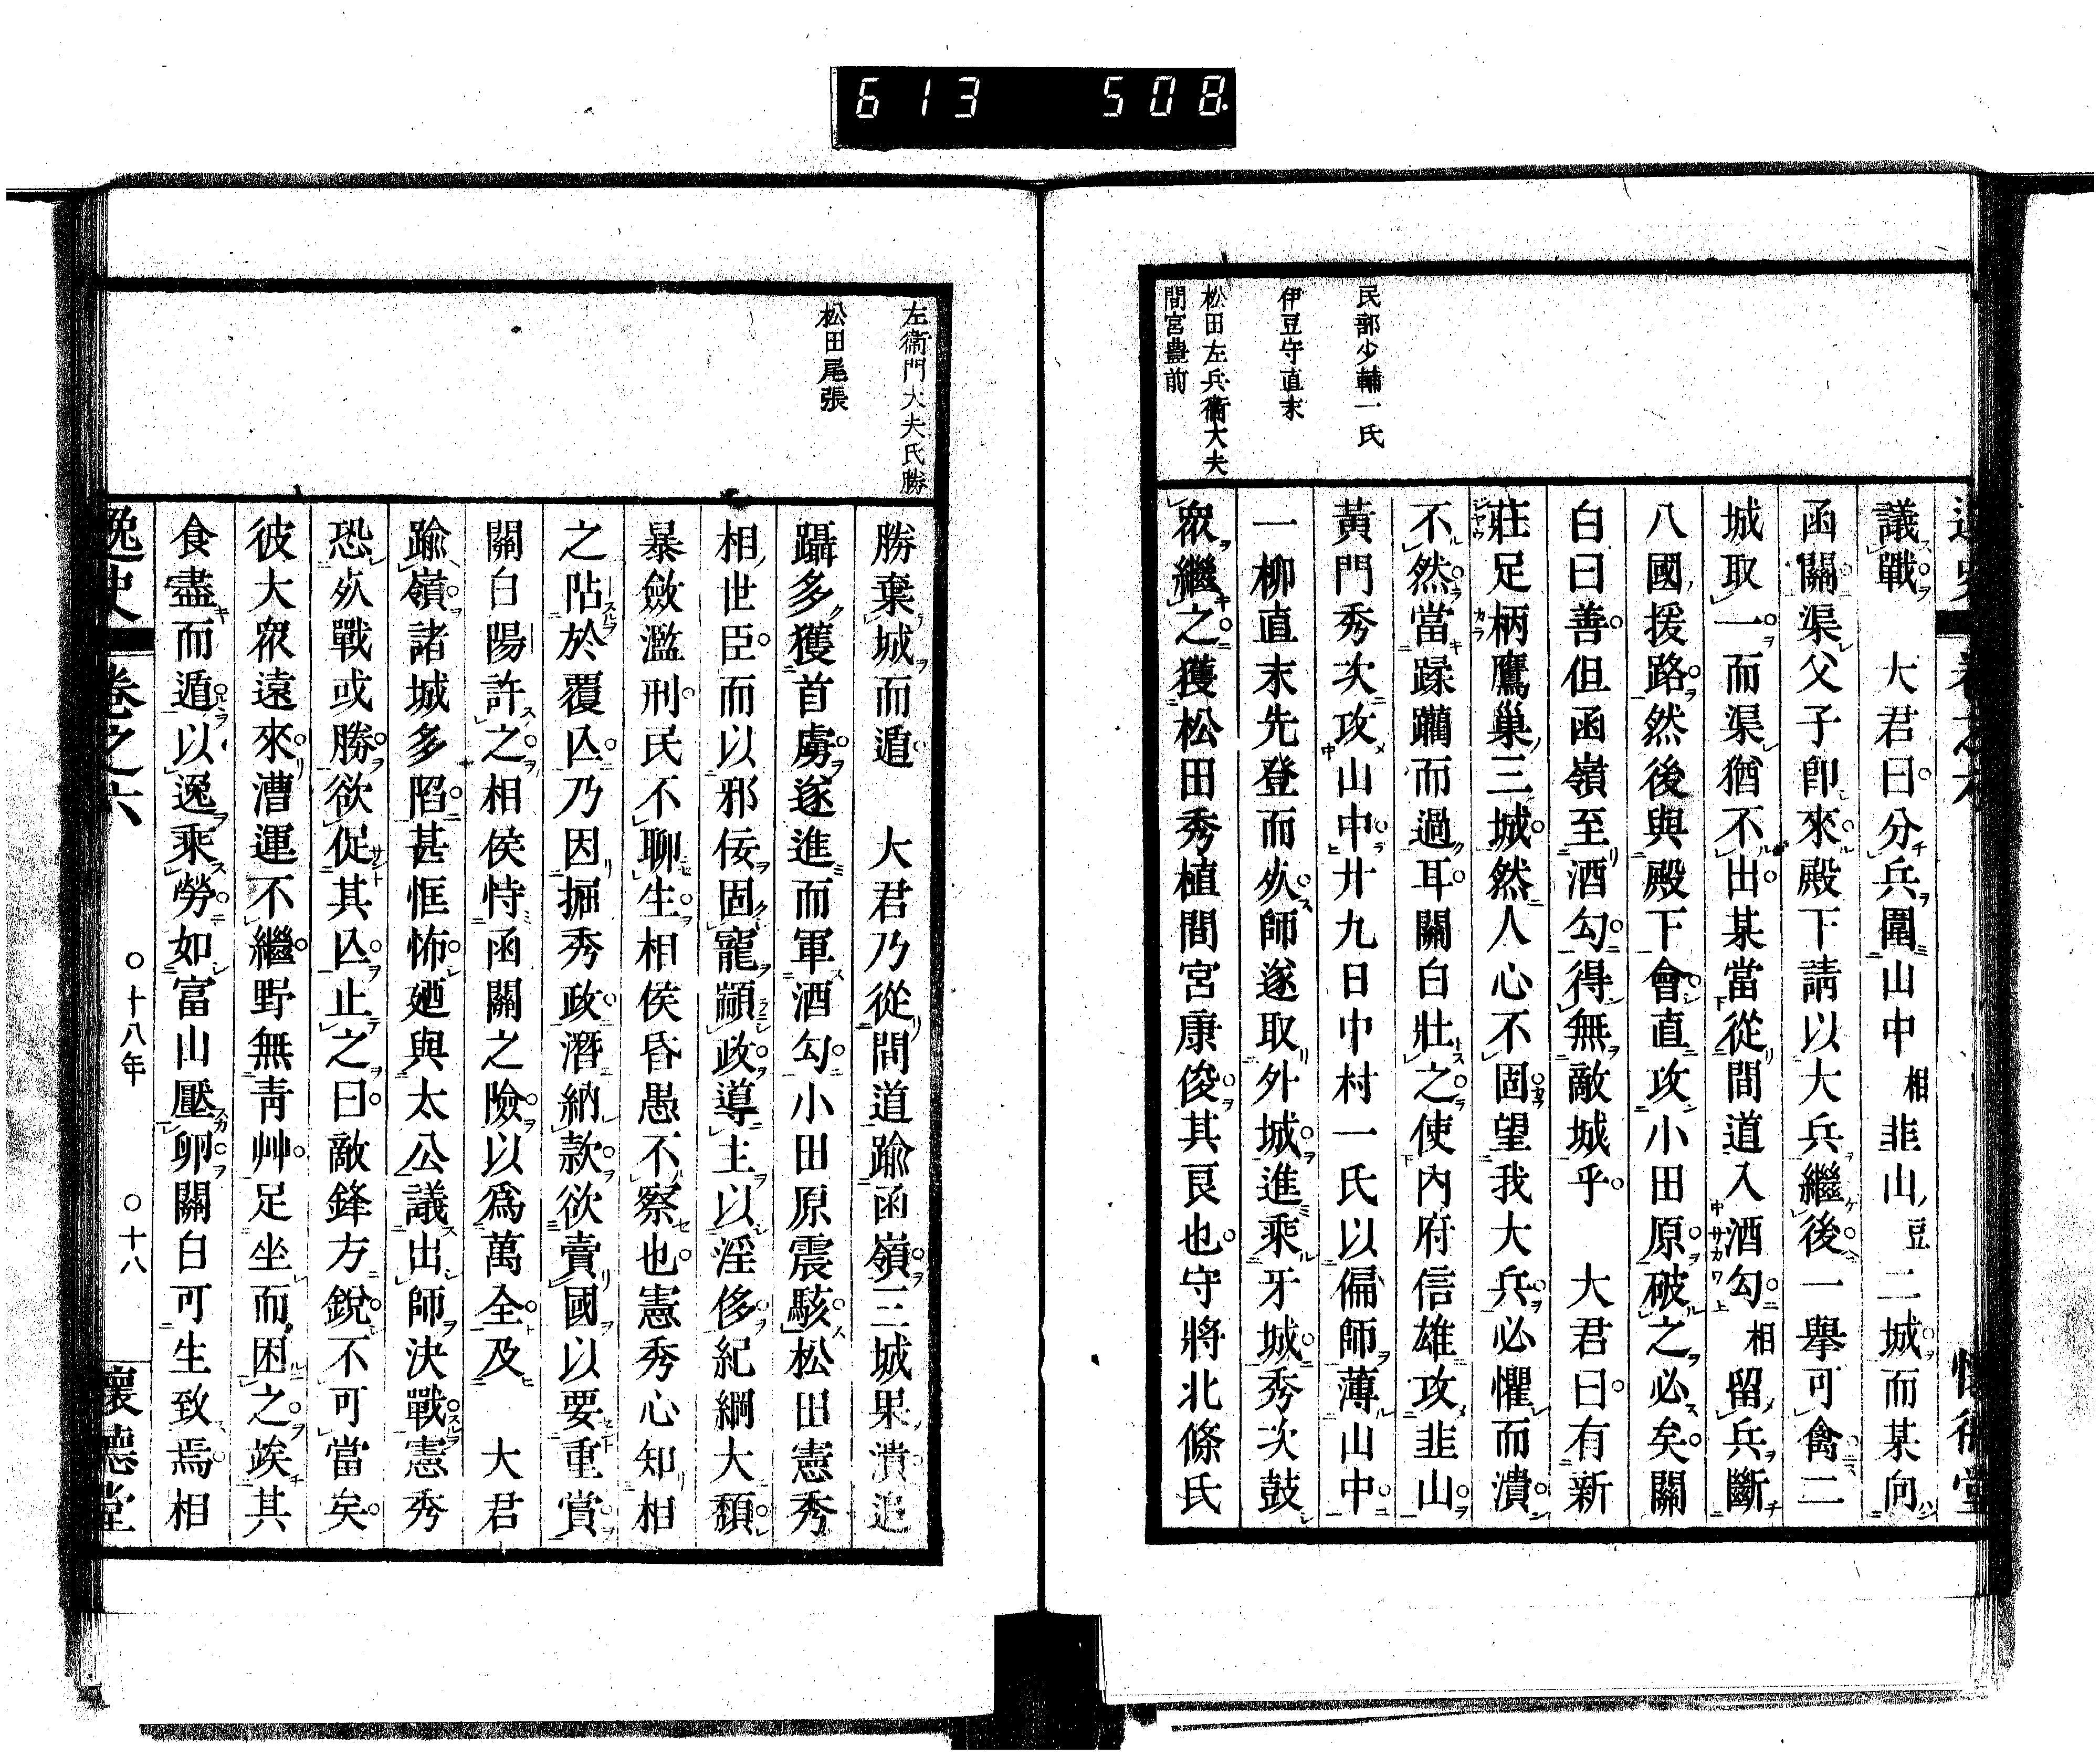 613 508
民部少輔一氏
伊豆守直末
松田左兵衞大夫
間宮豊前
議戰 大君曰分兵圍山中相韭山豆二城而某向
函關渠父子卽來殿下請以大兵繼後一擧可禽二
城取一而渠猶不出某當從間道入酒勾相留兵斷
八國援路然後與殿下會直攻小田原破之必矣關
白曰善但函嶺至酒勾得無敵城乎 大君曰有新
莊足柄鷹巢三城然人心不固望我大兵必懼而潰
不然當蹂躪而過耳關白壯之使內府信雄攻韭山
黃門秀次攻山中廿九日中村一氏以偏師薄山中
一柳直末先登而歿師遂取外城進乘牙城秀次鼓
衆繼之獲松田秀植間宮康俊其良也守將北條氏
左衞門大夫氏勝
松田尾張
勝棄城而遁 大君乃從間道踰函嶺三城果潰追
躡多獲首虜遂進而軍酒勾小田原震駭松田憲秀
相世臣而以邪佞固寵顓政導主以淫侈紀綱大頹
暴斂濫刑民不聊生相侯昏愚不察也憲秀心知相
之阽於覆亾乃因堀秀政潛納款欲賣國以要重賞
關白陽許之相侯恃函關之險以爲萬全及 大君
踰嶺諸城多陷甚恇怖廼與太公議出師決戰憲秀
恐歿戰或勝欲促其亾止之曰敵鋒方銳不可當矣
彼大衆遠來漕運不繼野無靑艸足坐而困之竢其
食盡而遁以逸乘勞如富山壓卵關白可生致焉相
逸史 卷之六 ○十八年 ○十八 懷德堂